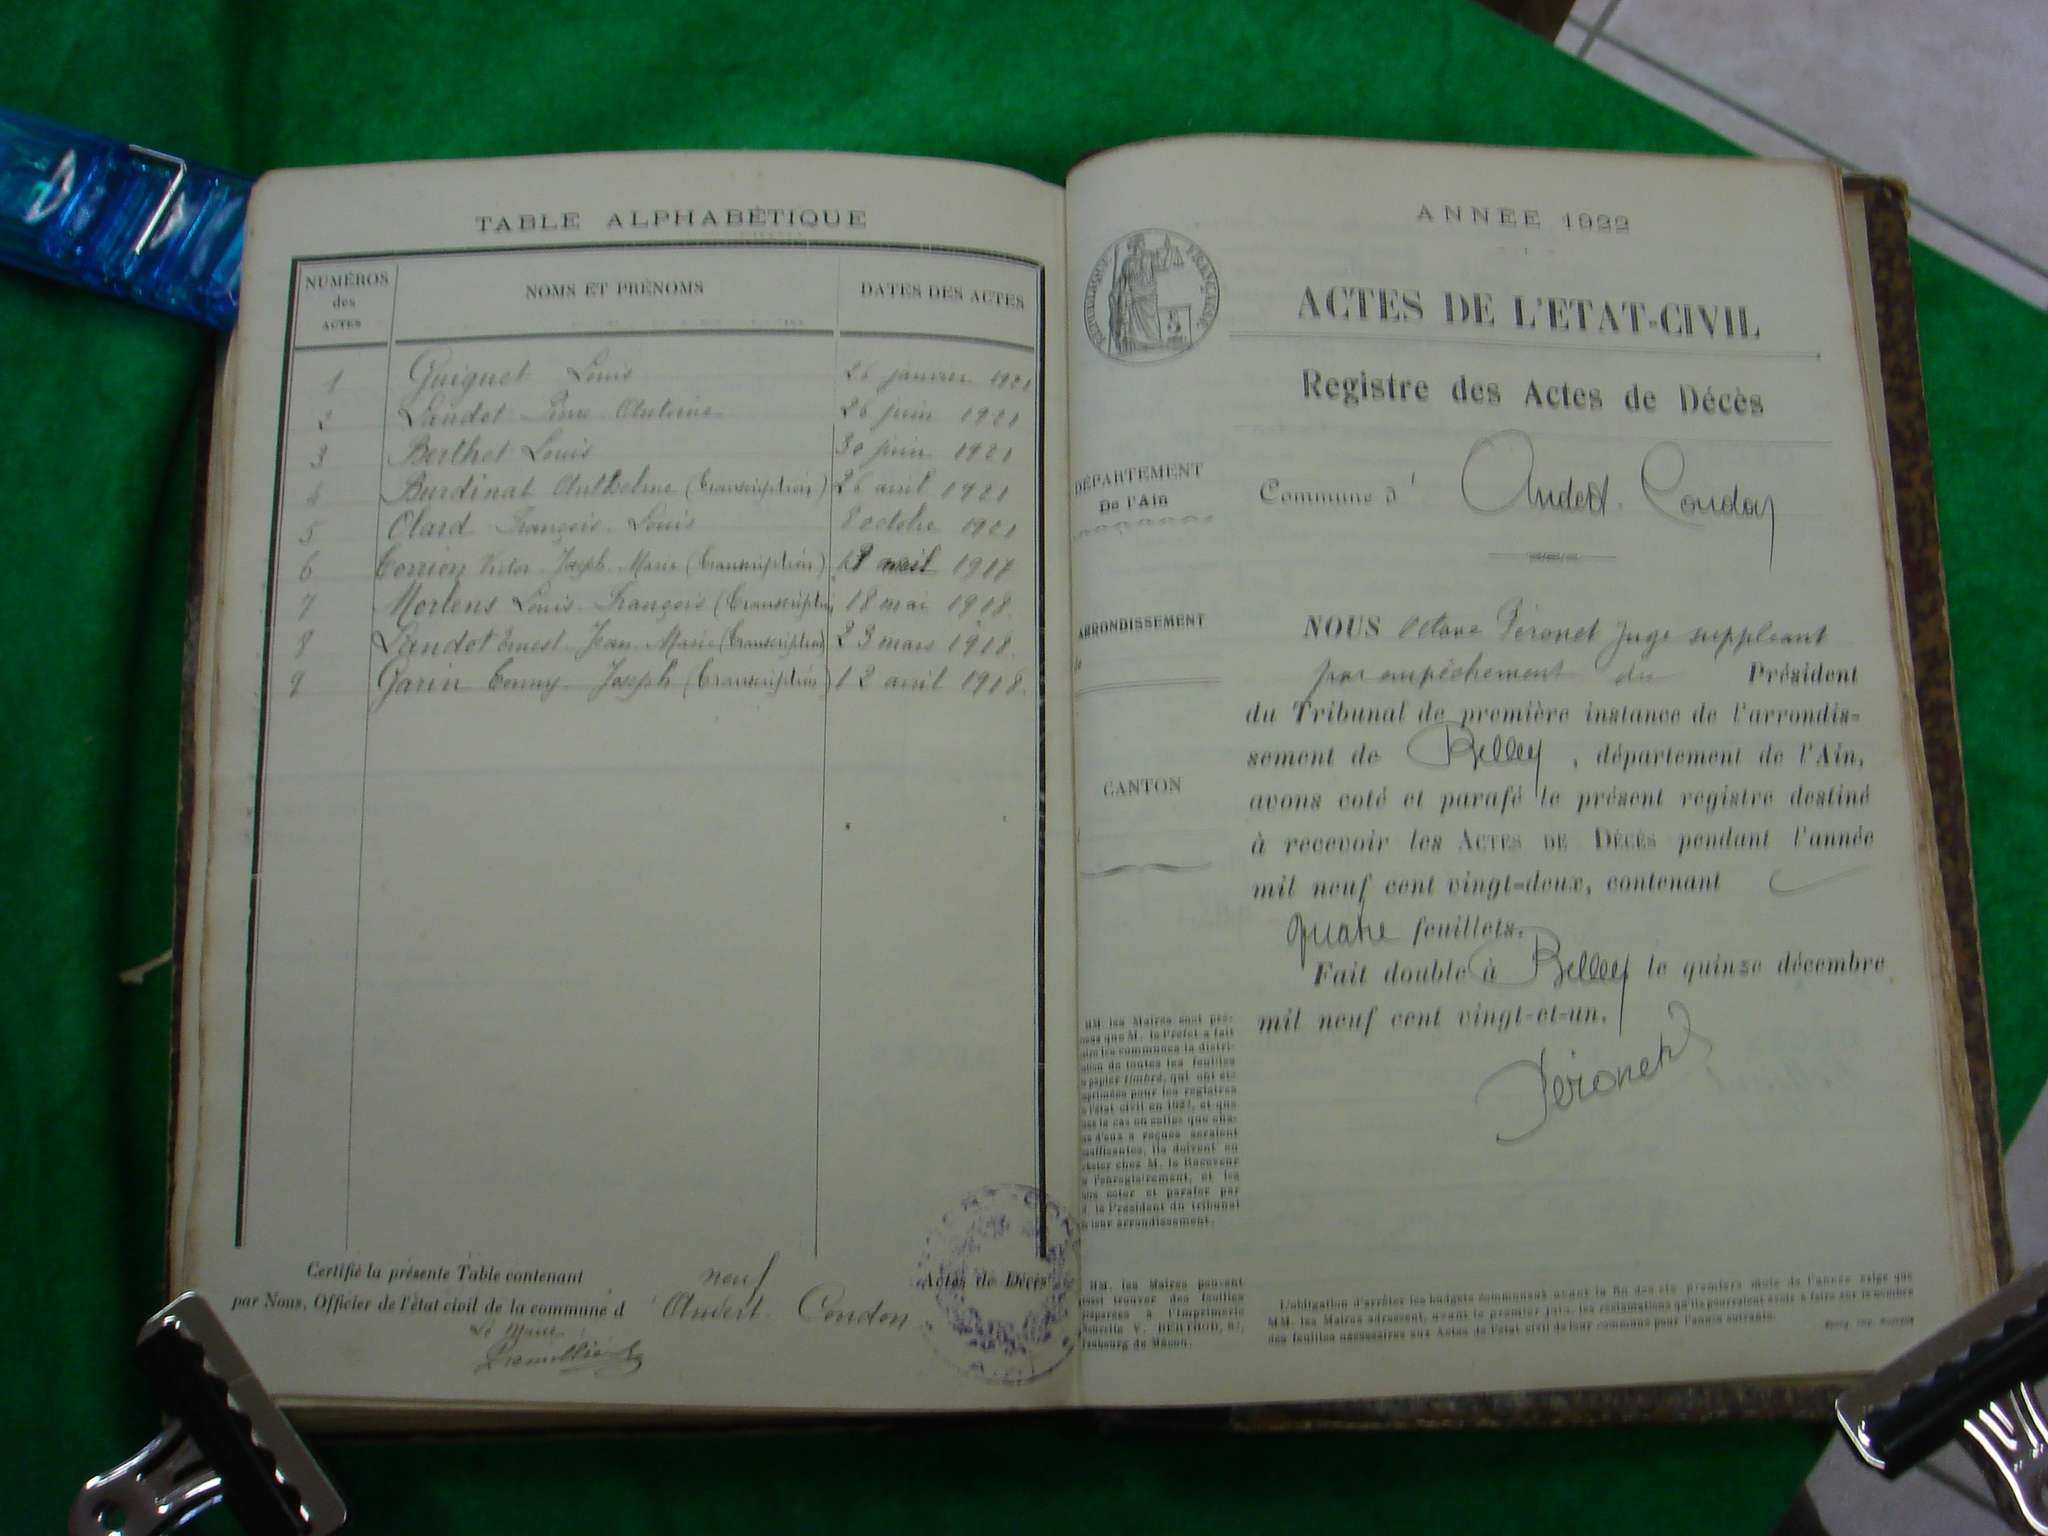 TABLE ALPHABÉTIQUE
NUMÉROS des ACTES
NOMS ET PRÉNOMS
DATES DES ACTES
1 Guiguet Louis 26 janvier 1921
2 Landot Pierre Antoine 26 juin 1921
3 Berthet Louis 30 juin 1921
4 Burdinat Anthelme (Transcription) 26 avril 1921
5 Olard François Louis 8 octobre 1921
6 Victor Joseph Marie (Transcription) avril 1917
7 Mortens Louis François (Transcription 18 mai 1918.
8 Landot Ernest Jean Marie (Transcription) 23 mars 1918.
9 Garin Joseph (Transcription) 12 avril 1918.
Certifié la présente Table contenant neuf Actes de Décès
par Nous, Officier de l'état civil de la commune d' Andert Condon
Le Maire
ANNÉE 1922
RÉPUBLIQUE FRANÇAISE
ACTES DE L'ETAT-CIVIL
Registre des Actes de Décès
DÉPARTEMENT
De l'Ain
Commune d' Andert-Condon
ARRONDISSEMENT
CANTON
NOUS Octave Péronet Juge suppléant
par empêchement du Président
du Tribunal de première instance de l'arrondis-
sement de Belley, département de l'Ain,
avons coté et parafé le présent registre destiné
à recevoir les ACTES DE DÉCÈS pendant l'année
mil neuf cent vingt-deux, contenant
quatre feuillets.
Fait double à Belley le quinze décembre
mil neuf cent vingt-et-un.
Péronet
MM. les Maires sont pré-
que M. le Préfet a fait
les communes la distri-
de toutes les feuilles
papier timbré, qui ont été
imprimées pour les registres
l'état civil en 1922, et que
le cas où celles que cha-
d'eux a reçues seraient
insuffisantes, ils doivent en
acheter chez M. le Receveur
l'enregistrement, et les
coter et parafer par
le Président du tribunal
leur arrondissement.
MM. les Maires peuvent
aussi trouver des feuilles
à l'Imprimerie
V. BERTHOD,
faubourg de Mâcon.
L'obligation d'arrêter les budgets communaux avant la fin des six premiers mois de l'année exige que
MM. les Maires adressent, avant le premier juin, les réclamations qu'ils pourraient avoir à faire sur le nombre
des feuilles nécessaires aux Actes de l'état civil de leur commune pour l'année suivante.